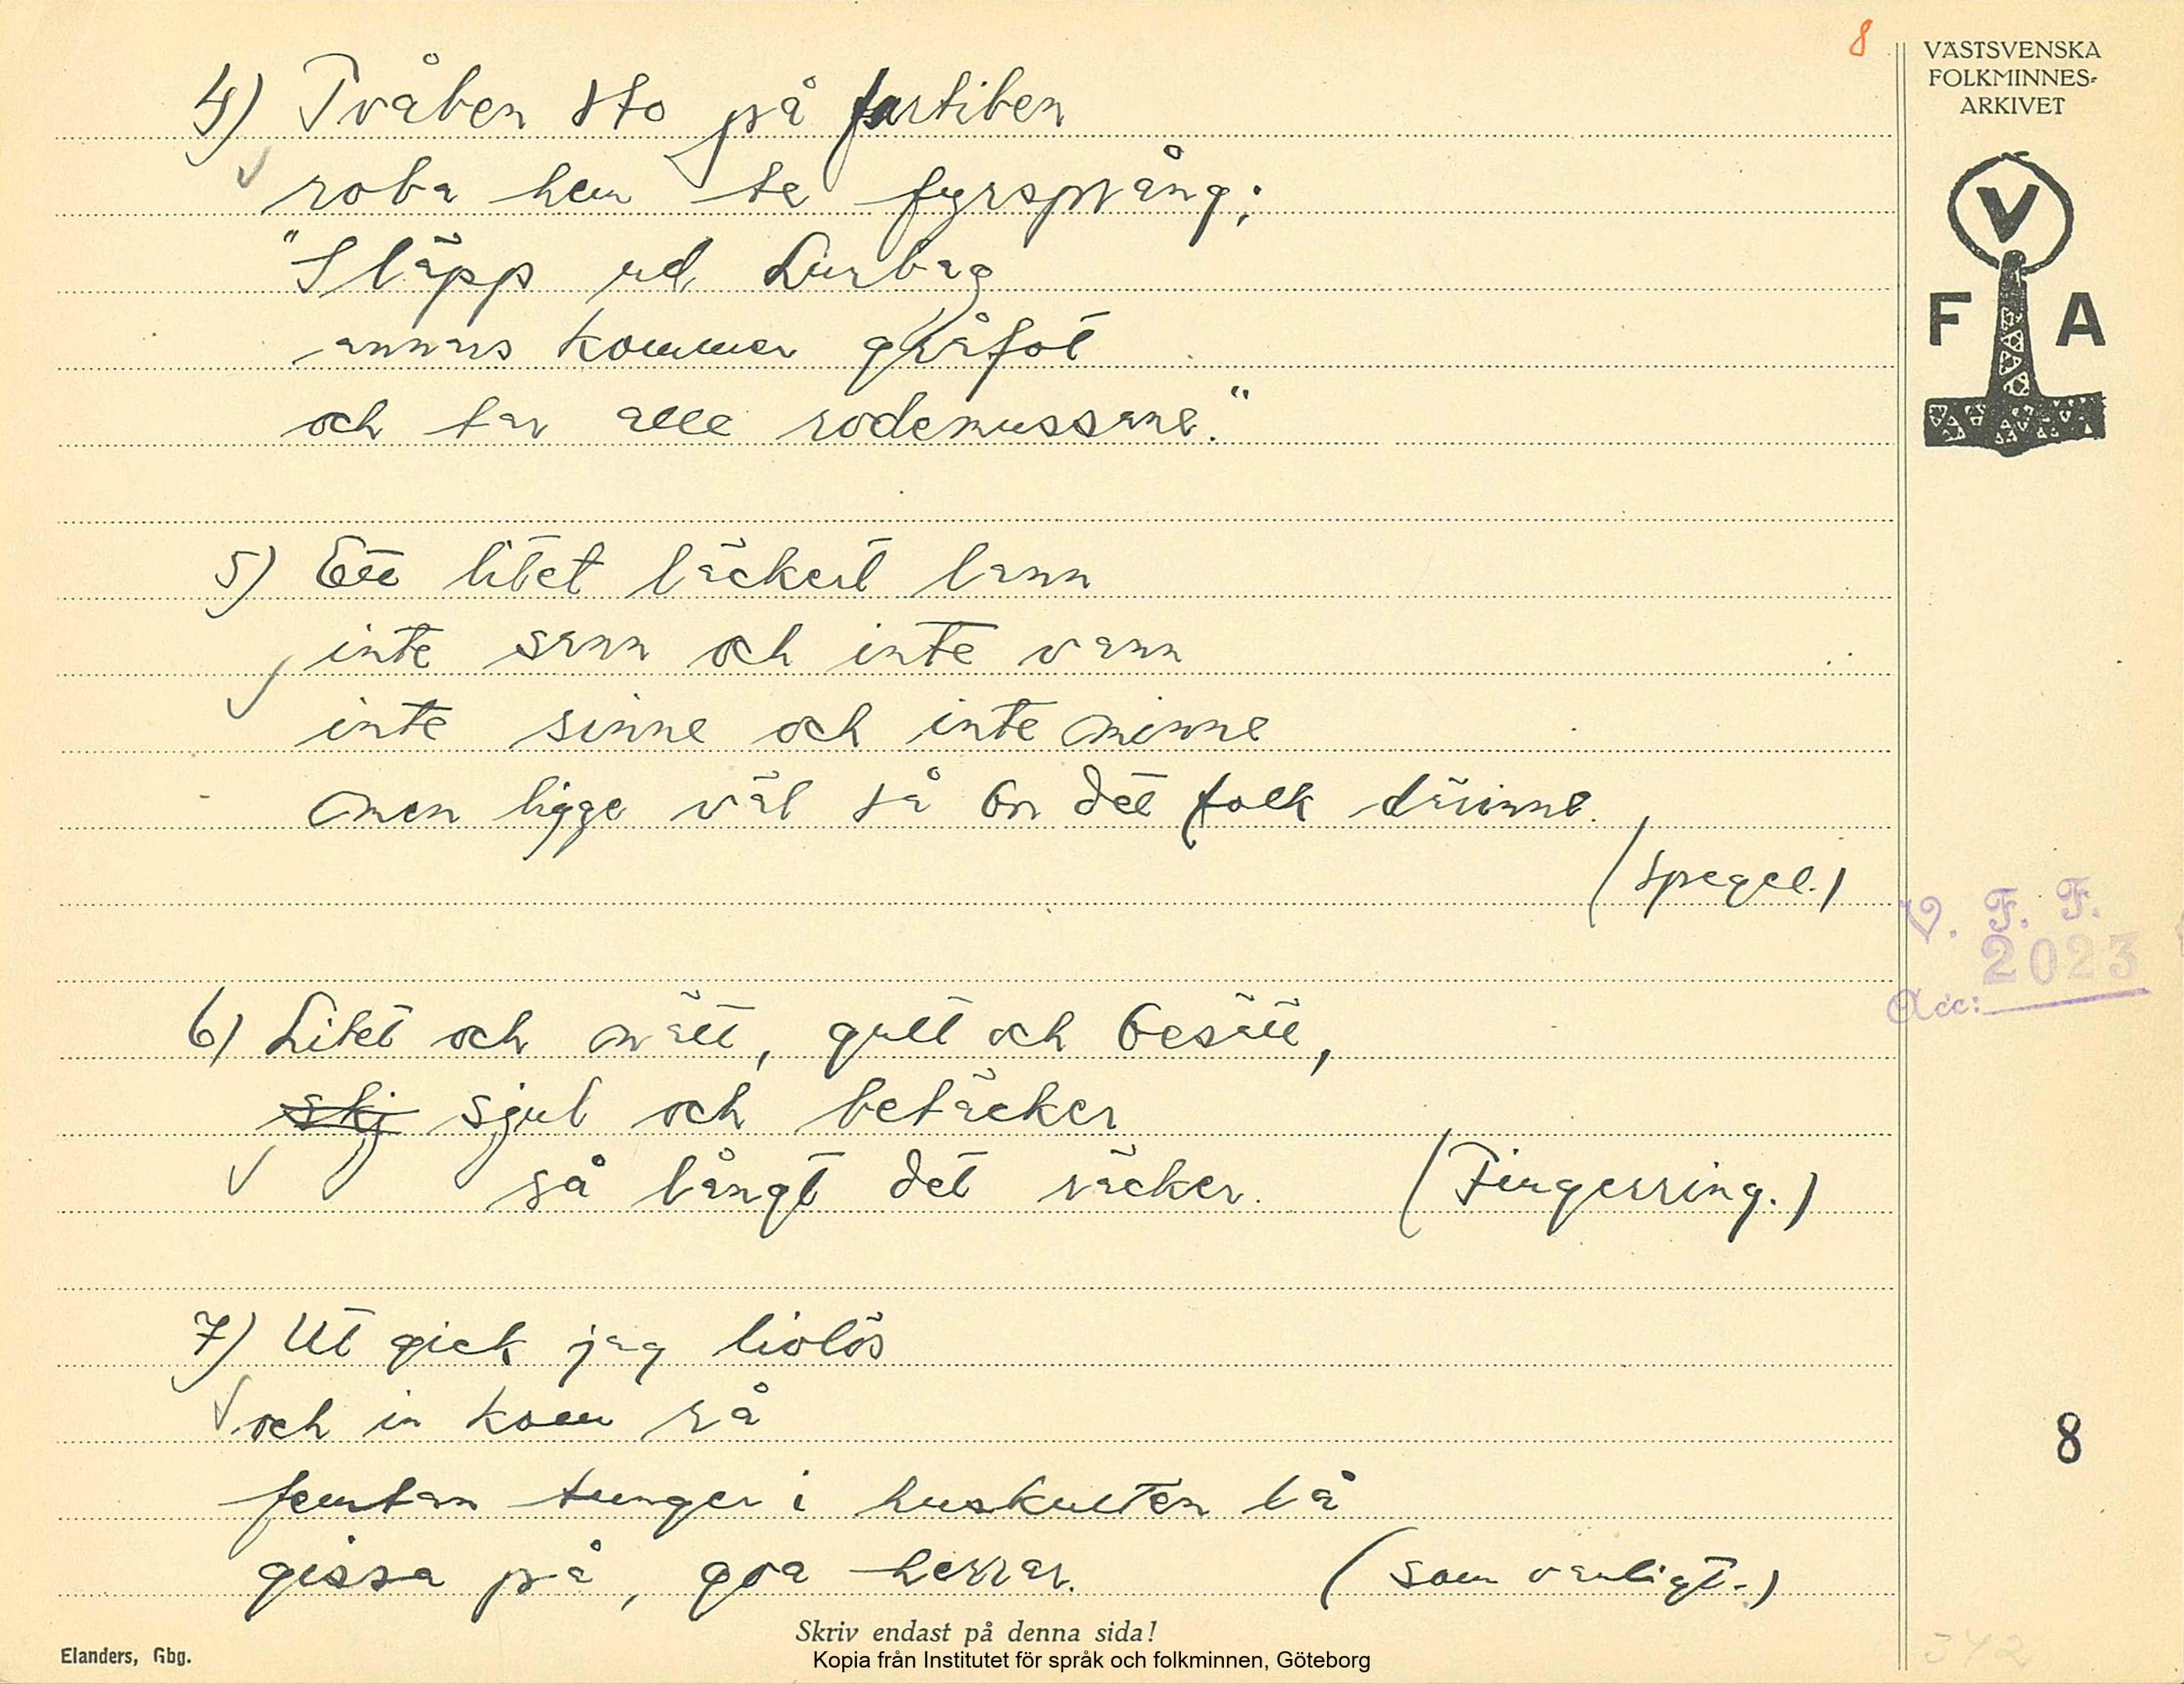 8
VÄSTSVENSKA
FOLKMINNES-
ARKIVET
V
F A
4) Tvåben sto på
roba hem te fyrsprång:
"Släpp ud Lurbag
annars kommer gråfot
och tar alle rodemussane."
5) Ett litet läckert lann
inte sann och inte vann
inte sinne och inte minne
men ligge väl så bor det folk därinne.
(Spegel.)
V. F. F.
2023
Acc:
6) Litet och nätt, gult och besätt,
skj sjul och betäcker
så långt det räcker. (Fingerring.)
7) Ut gick jag liolös
och in kom rå
femtan tunger i huskulten lå
gissa på, goa herrar. (som vanligt.)
8
Skriv endast på denna sida!
Elanders, Gbg.
Kopia från Institutet för språk och folkminnen, Göteborg
342